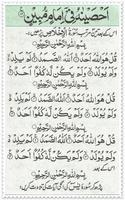 اَحْصَيْنٰهُ فِيْٓ اِمَامٍ مُّبِيْنٍ
اس کے بعد سورۃ الاخلاص پڑھیں
بِسْمِ اللّٰهِ الرَّحْمٰنِ الرَّحِيْمِ
قُلْ هُوَ اللّٰهُ اَحَدٌ اَللّٰهُ الصَّمَدُ لَمْ يَلِدْ
وَلَمْ يُوْلَدْ وَلَمْ يَكُنْ لَّهٗ كُفُوًا اَحَدٌ
بِسْمِ اللّٰهِ الرَّحْمٰنِ الرَّحِيْمِ
قُلْ هُوَ اللّٰهُ اَحَدٌ اَللّٰهُ الصَّمَدُ لَمْ يَلِدْ
وَلَمْ يُوْلَدْ وَلَمْ يَكُنْ لَّهٗ كُفُوًا اَحَدٌ
بِسْمِ اللّٰهِ الرَّحْمٰنِ الرَّحِيْمِ
قُلْ هُوَ اللّٰهُ اَحَدٌ اَللّٰهُ الصَّمَدُ لَمْ يَلِدْ
وَلَمْ يُوْلَدْ وَلَمْ يَكُنْ لَّهٗ كُفُوًا اَحَدٌ
اس کے بعد
بِسْمِ اللّٰهِ الرَّحْمٰنِ الرَّحِيْمِ